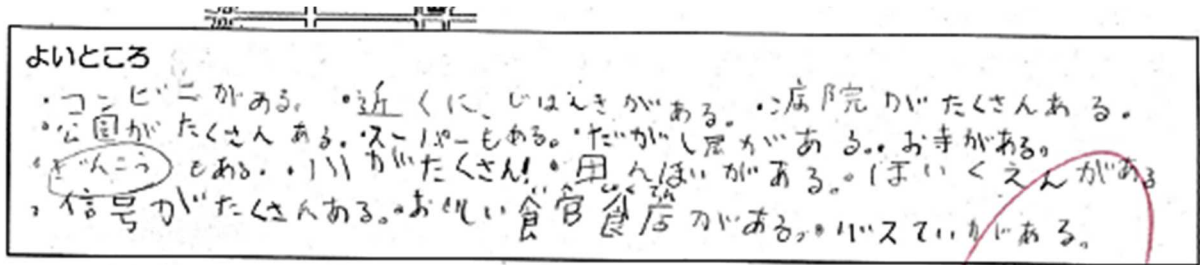 よいところ
・コンビニがある。・近くに、じはんきがある。・病院がたくさんある。
・公園がたくさんある。・スーパーもある。・だがし屋がある。・お寺がある。
・ぎんこうもある。・川がたくさん!・田んぼいがある。・ほいくえんがある
・信号がたくさんある。・おいしい食店がある。・バスていがある。